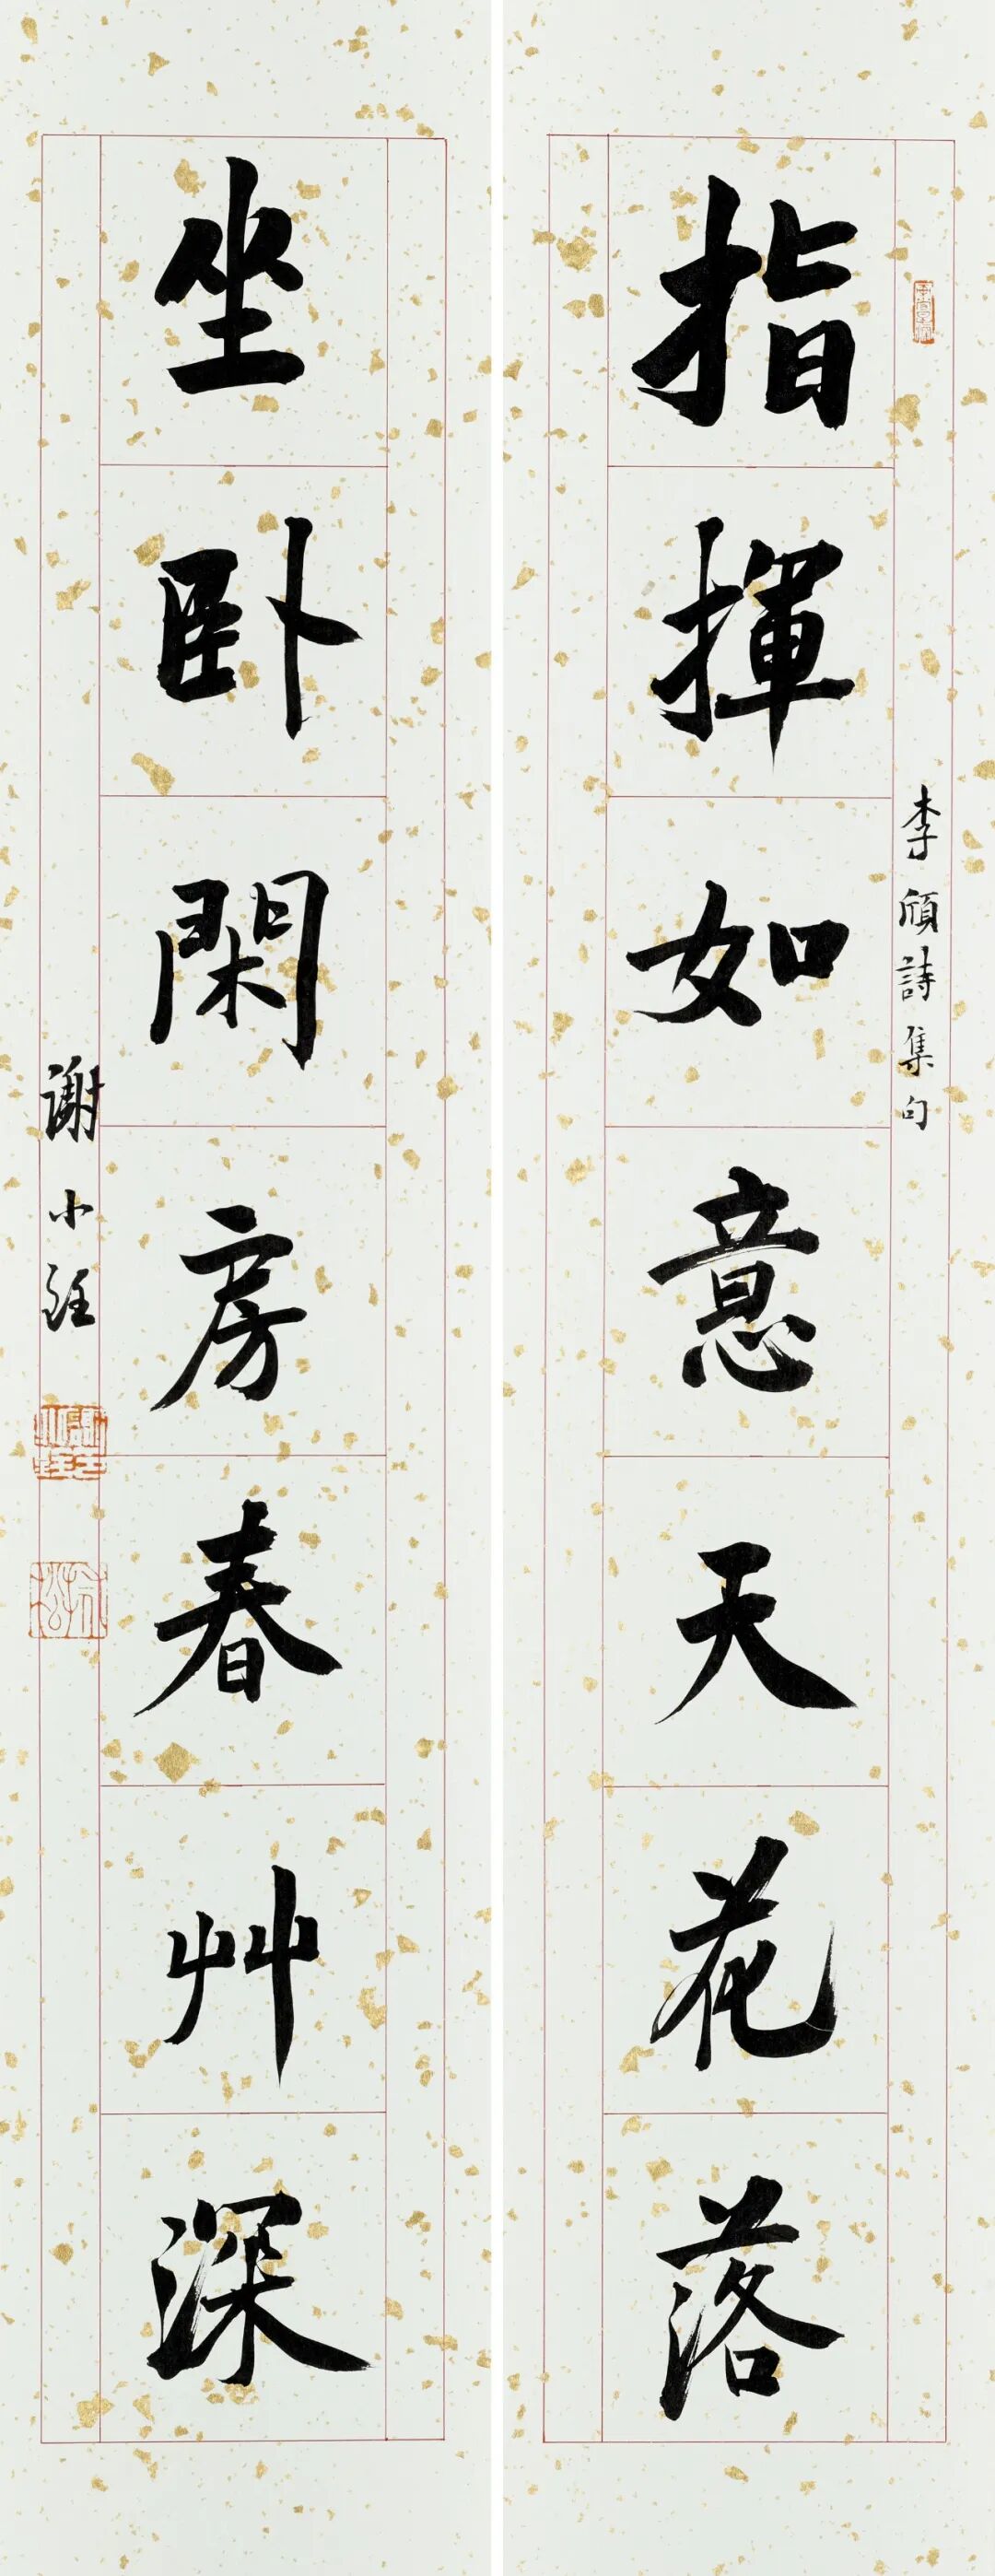 指揮如意天花落
李頎詩集句
坐卧閑房春艸深
謝小銓